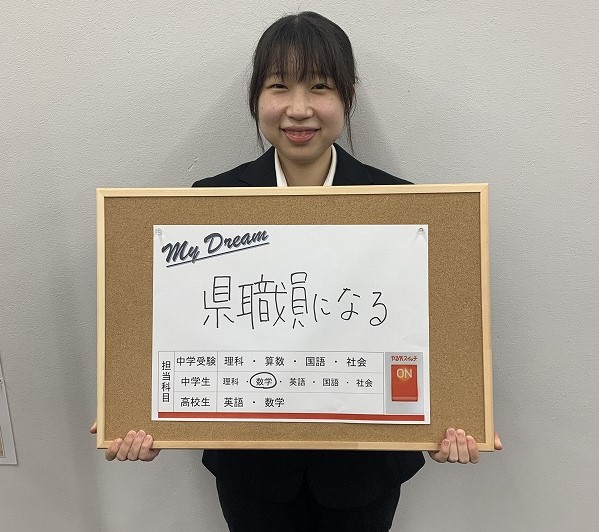 My Dream
県職員になる
担当科目
中学受験 理科 ・ 算数 ・ 国語 ・ 社会
中学生 理科 ・ 数学 ・ 英語 ・ 国語 ・ 社会
高校生 英語 ・ 数学
やる気スイッチ
ON